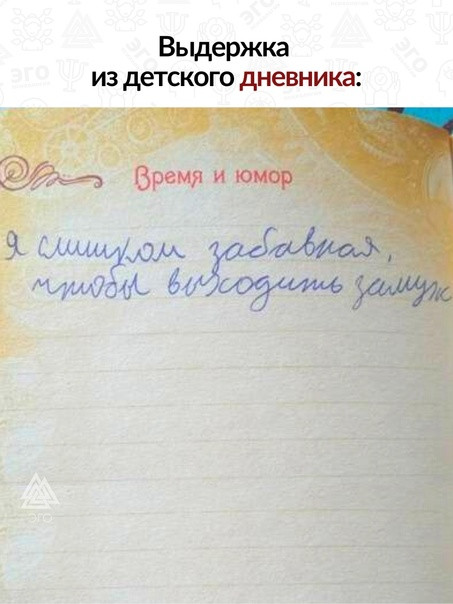 Выдержка
из детского дневника:
Время и юмор
я слишком забавная,
чтобы выходить замуж